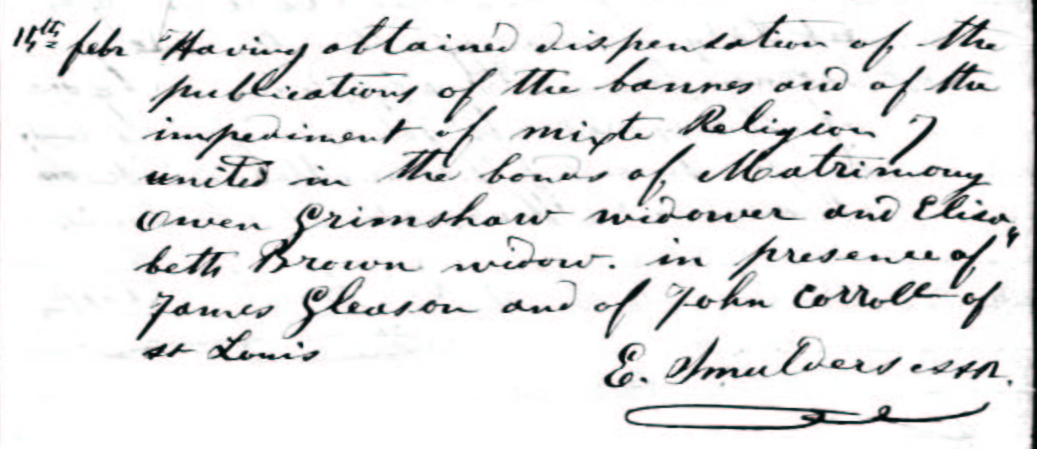 14th febr Having obtained dispensation of the
publications of the bannes and of the
impediment of mixte Religion I
united in the bonds of Matrimony
Owen Grimshaw widower and Elisa„
beth Brown widow. in presence of
James Gleason and of John Carroll of
st Louis
E. Smulders CSSR.